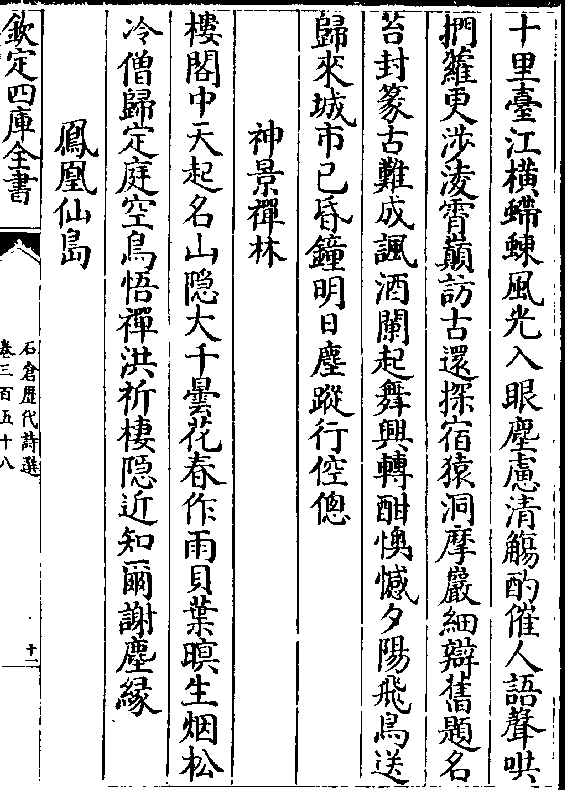 十里臺江橫螮蝀風光入眼塵慮清觴酌催人語聲哄
捫蘿更涉淩霄巔訪古還探宿猿洞摩巖細辯舊題名
苔封篆古難成諷酒闌起舞興轉酣懊憾夕陽飛鳥送
歸來城市已昏鐘明日塵蹤行倥傯
神景禪林
樓閣中天起名山隐大千曇花春作雨貝葉暝生烟松
冷僧歸定庭空鳥悟禪洪祈棲隠近知爾謝塵縁
鳳凰仙島
欽定四庫全書
石倉歷代詩選
卷三百五十八
十二